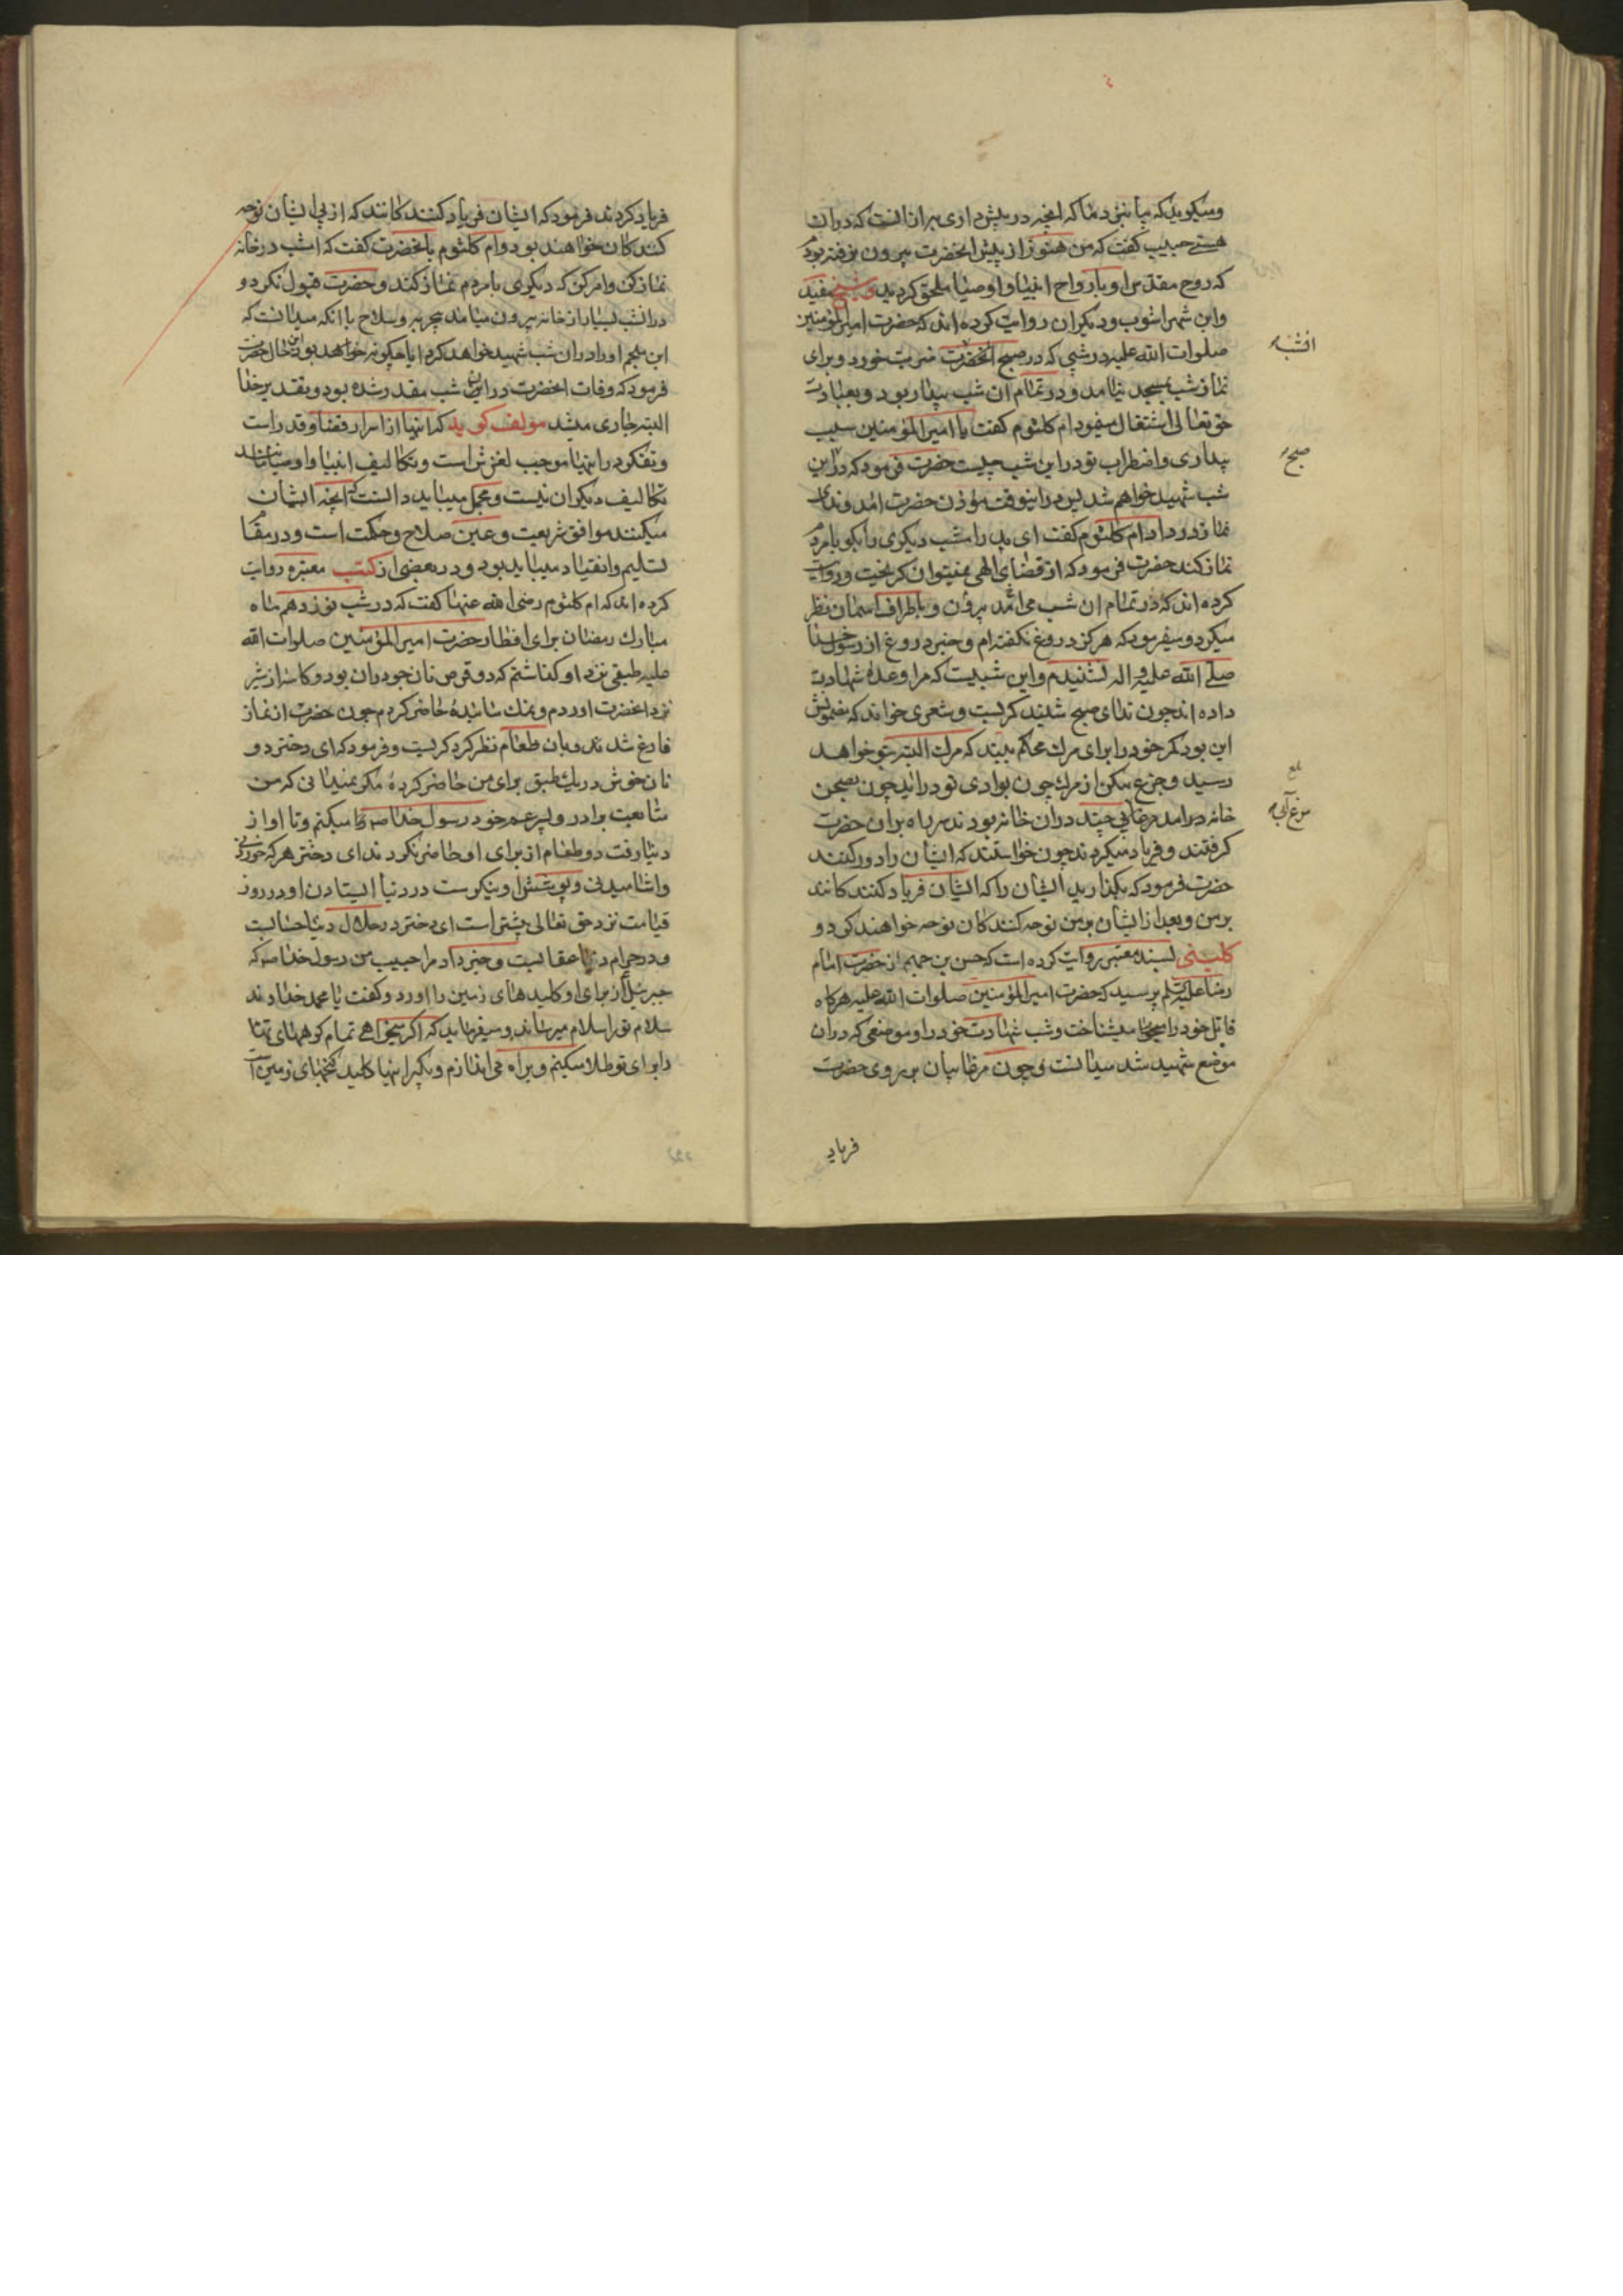 و میکوید که بیا بنزد ما که انچه در پیش داری بهتر از انست که دران
هستی حبیب کفت که من هنوز از پیش انحضرت بیرون نرفته بودم
که روح مقدس او بارواح انبیا و اوصیا ملحق کردید و شیخ مفید
وابن شهراشوب و دیکران روایت کرده اند که حضرت امیرالمؤمنین
صلوات الله علیه در شبی که در صبح انحضرت ضربت خورد و برای
نماز شب بمسجد نیامد و در تمام ان شب بیدار بود و بعبادت
حق تعالی اشتغال مینمود ام کلثوم کفت یا امیرالمؤمنین سبب
بیداری و اضطراب تو در این شب چیست حضرت فرمود که در این
شب شهید خواهم شد پس در اینوقت مؤذن حضرت امد و ندای
نماز در داد ام کلثوم کفت ای پدر امشب دیکری را بکو با مردم
نماز کند حضرت فرمود که از قضای الهی نمیتوان کریخت و روایت
کرده اند که در تمام ان شب می امد بیرون و باطراف اسمان نظر
میکرد و میفرمود که هرکز دروغ نکفته ام و خبر دروغ از رسول خدا
صلی الله علیه و اله نشنیدم و این شبیست که مرا وعدهٔ شهادت
داده اند چون ندای صبح شنید کریست و شعری خواند که مضمونش
این بود کمر خود را برای مرک محکم ببند که مرک البته بتو خواهد
رسید و جزع مکن از مرک چون بوادی تو دراید چون بصحن
خانه درامد مرغابی چند دران خانه بودند سر راه بران حضرت
کرفتند و فریاد میکردند چون خواستند که ایشان را دور کنند
حضرت فرمود که بکذارید ایشان را که ایشان فریاد کنند کانند
بر من و بعد از ایشان بر من نوحه کنند کان نوحه خواهند کرد و
کلینی بسند معتبر روایت کرده است که حسن بن جهم از حضرت امام
رضا علیه السلم پرسید که حضرت امیرالمؤمنین صلوات الله علیه هرکاه
قاتل خود را میشناخت و شب شهادت خود را و موضعی که دران
موضع شهید شد میدانست و چون مرغابیان بر روی حضرت
انشبا
صبح
مرغ آبی
فریاد
فریاد کردند فرمود که ایشان فریاد کنند کانند که از پی ایشان نوحه
کنند کان خواهند بود و ام کلثوم بانحضرت کفت که امشب در خانه
نماز کن و امر کن که دیکری با مردم نماز کند و حضرت قبول نکرد و
درانشب بسیار از خانه بیرون میامد بی حربه و سلاح با انکه میدانست که
ابن ملجم او را دران شب شهید خواهد کرد ایا چکونه خواهد بود این حال حضرت
فرمود که وفات انحضرت در این شب مقدر شده بود و تقدیر خدا
البته جاری میشد مولف کوید که اینها از اسرار قضا و قدر است
و تفکر در اینها موجب لغزش است و تکالیف انبیا و اوصیا مانند
تکالیف دیکران نیست و مجمل میباید دانست که انچه ایشان
میکنند موافق شریعت و عین صلاح و حکمت است و در مقام
تسلیم و انقیاد میباید بود و در بعضی از کتب معتبره روایت
کرده اند که ام کلثوم رضی الله عنها کفت که در شب نوزدهم ماه
مبارک رمضان برای افطار حضرت امیرالمؤمنین صلوات الله
علیه طبقی نزد او کذاشتم که دو قرص نان جو دران بود و کاسه از شیر
نزد انحضرت اوردم و نمک سائیدهٔ حاضر کردم چون حضرت از نماز
فارغ شدند و بان طعام نظر کرد کریست و فرمود که ای دختر دو
نان خورش در یک طبق برای من حاضر کردهٔ مکر نمیدانی که من
متابعت برادر و پسر عم خود رسول خدا ص میکنم و تا او از
دنیا رفت دو طعام از برای او حاضر نکردند ای دختر هر که خوردنی
و اشامیدنی و پوشش او نیکوست در دنیا ایستادن او در روز
قیامت نزد حق تعالی بیشتر است ای دختر در حلال دنیا حسابست
و در حرام دنیا عقابست و خبر داد مرا حبیب من رسول خدا ص که
جبرئیل از برای او کلیدهای زمین را اورد و کفت یا محمد خداوند
سلام تو را سلام میرساند و میفرماید که اکر میخواهی تمام کوههای تهامه
را برای تو طلا میکنم و براه می اندازم و بکیر اینها کلید کنجهای زمین است